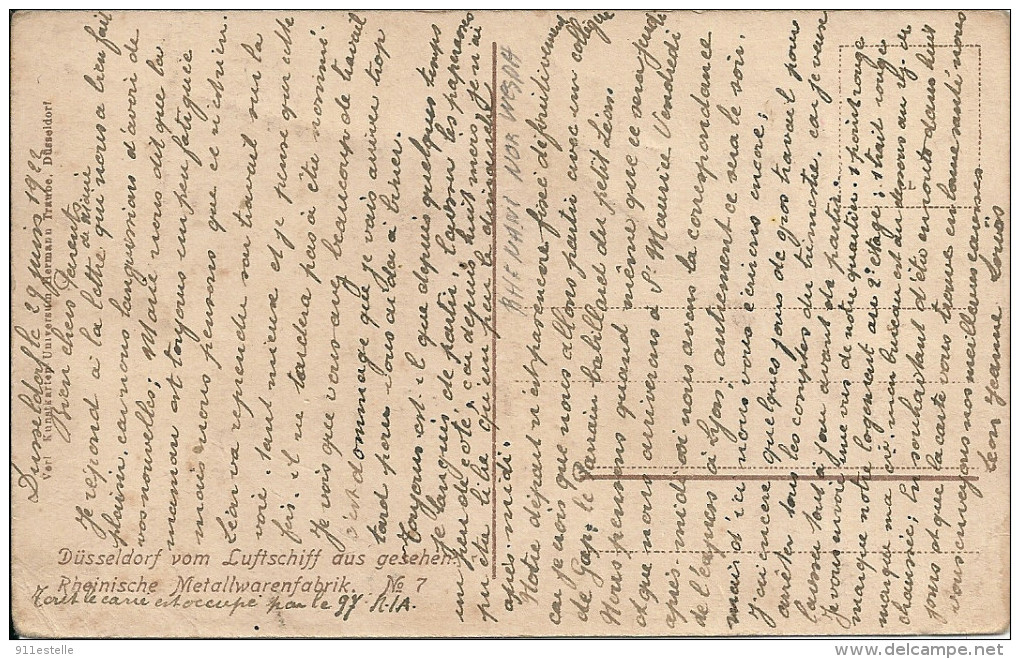 Dusseldorf le 29 juin 1922
Bien chers Parents
Je répond à la lettre de Mémé qui nous a bien fait
plaisir, car nous languissions d'avoir de
vos nouvelles; Marie nous dit que la
maman est toujours un peu fatiguée
mais nous pensons que ce n'est rien.
Léon va reprendre son travail sur la
voie tant mieux et je pense que cette
fois il ne tardera pas à être nommé.
Je vois que vous avez beaucoup de travail
c'est dommage que je vais arriver trop
tard pour vous aider à biner.
Toujours est-il que depuis quelques temps
je languis de partir, laissons les paperasses
un peu de côté car depuis huit mois je n'ai
pu être libre qu'un peu le dimanche
après midi.
Notre départ n'est pas encore fixé définitivement
car je crois que nous allons partir avec un collègue
de Gap, le Parrain babillard du petit Léon
Nous pensons quand même que ce sera jeudi
et que nous arriverons à St Maurice Vendredi
après-midi si nous avons la correspondance
de l'express à Lyon, autrement ce sera le soir,
mais d'ici nous vous écrirons encore;
J'ai encore quelques jours de gros travail pour
arrêter tous les comptes du trimestre, car je veux
laisser tout à jour avant de partir.
Je vous envoie une vue de notre quartier: 1 point rouge
marque notre logement au 2e étage; 1 trait rouge
marque ma
où mon bureau est au dessous au rg. de
chaussée; En souhaitant d'être encore tous dans huit
jours et que la carte vous trouve en bonne santé nous
vous envoyons nos meilleures caresses
Léon Jeanne Louis
RHENANI NOR WESPH
Verl. Kunstkarten Universum Hermann Traube, Düsseldorf
Düsseldorf vom Luftschiff aus gesehen.
Rheinische Metallwarenfabrik. No 7
Tout le carré est occupé par le 97 R.I.A.
911estelle
www.delcampe.net